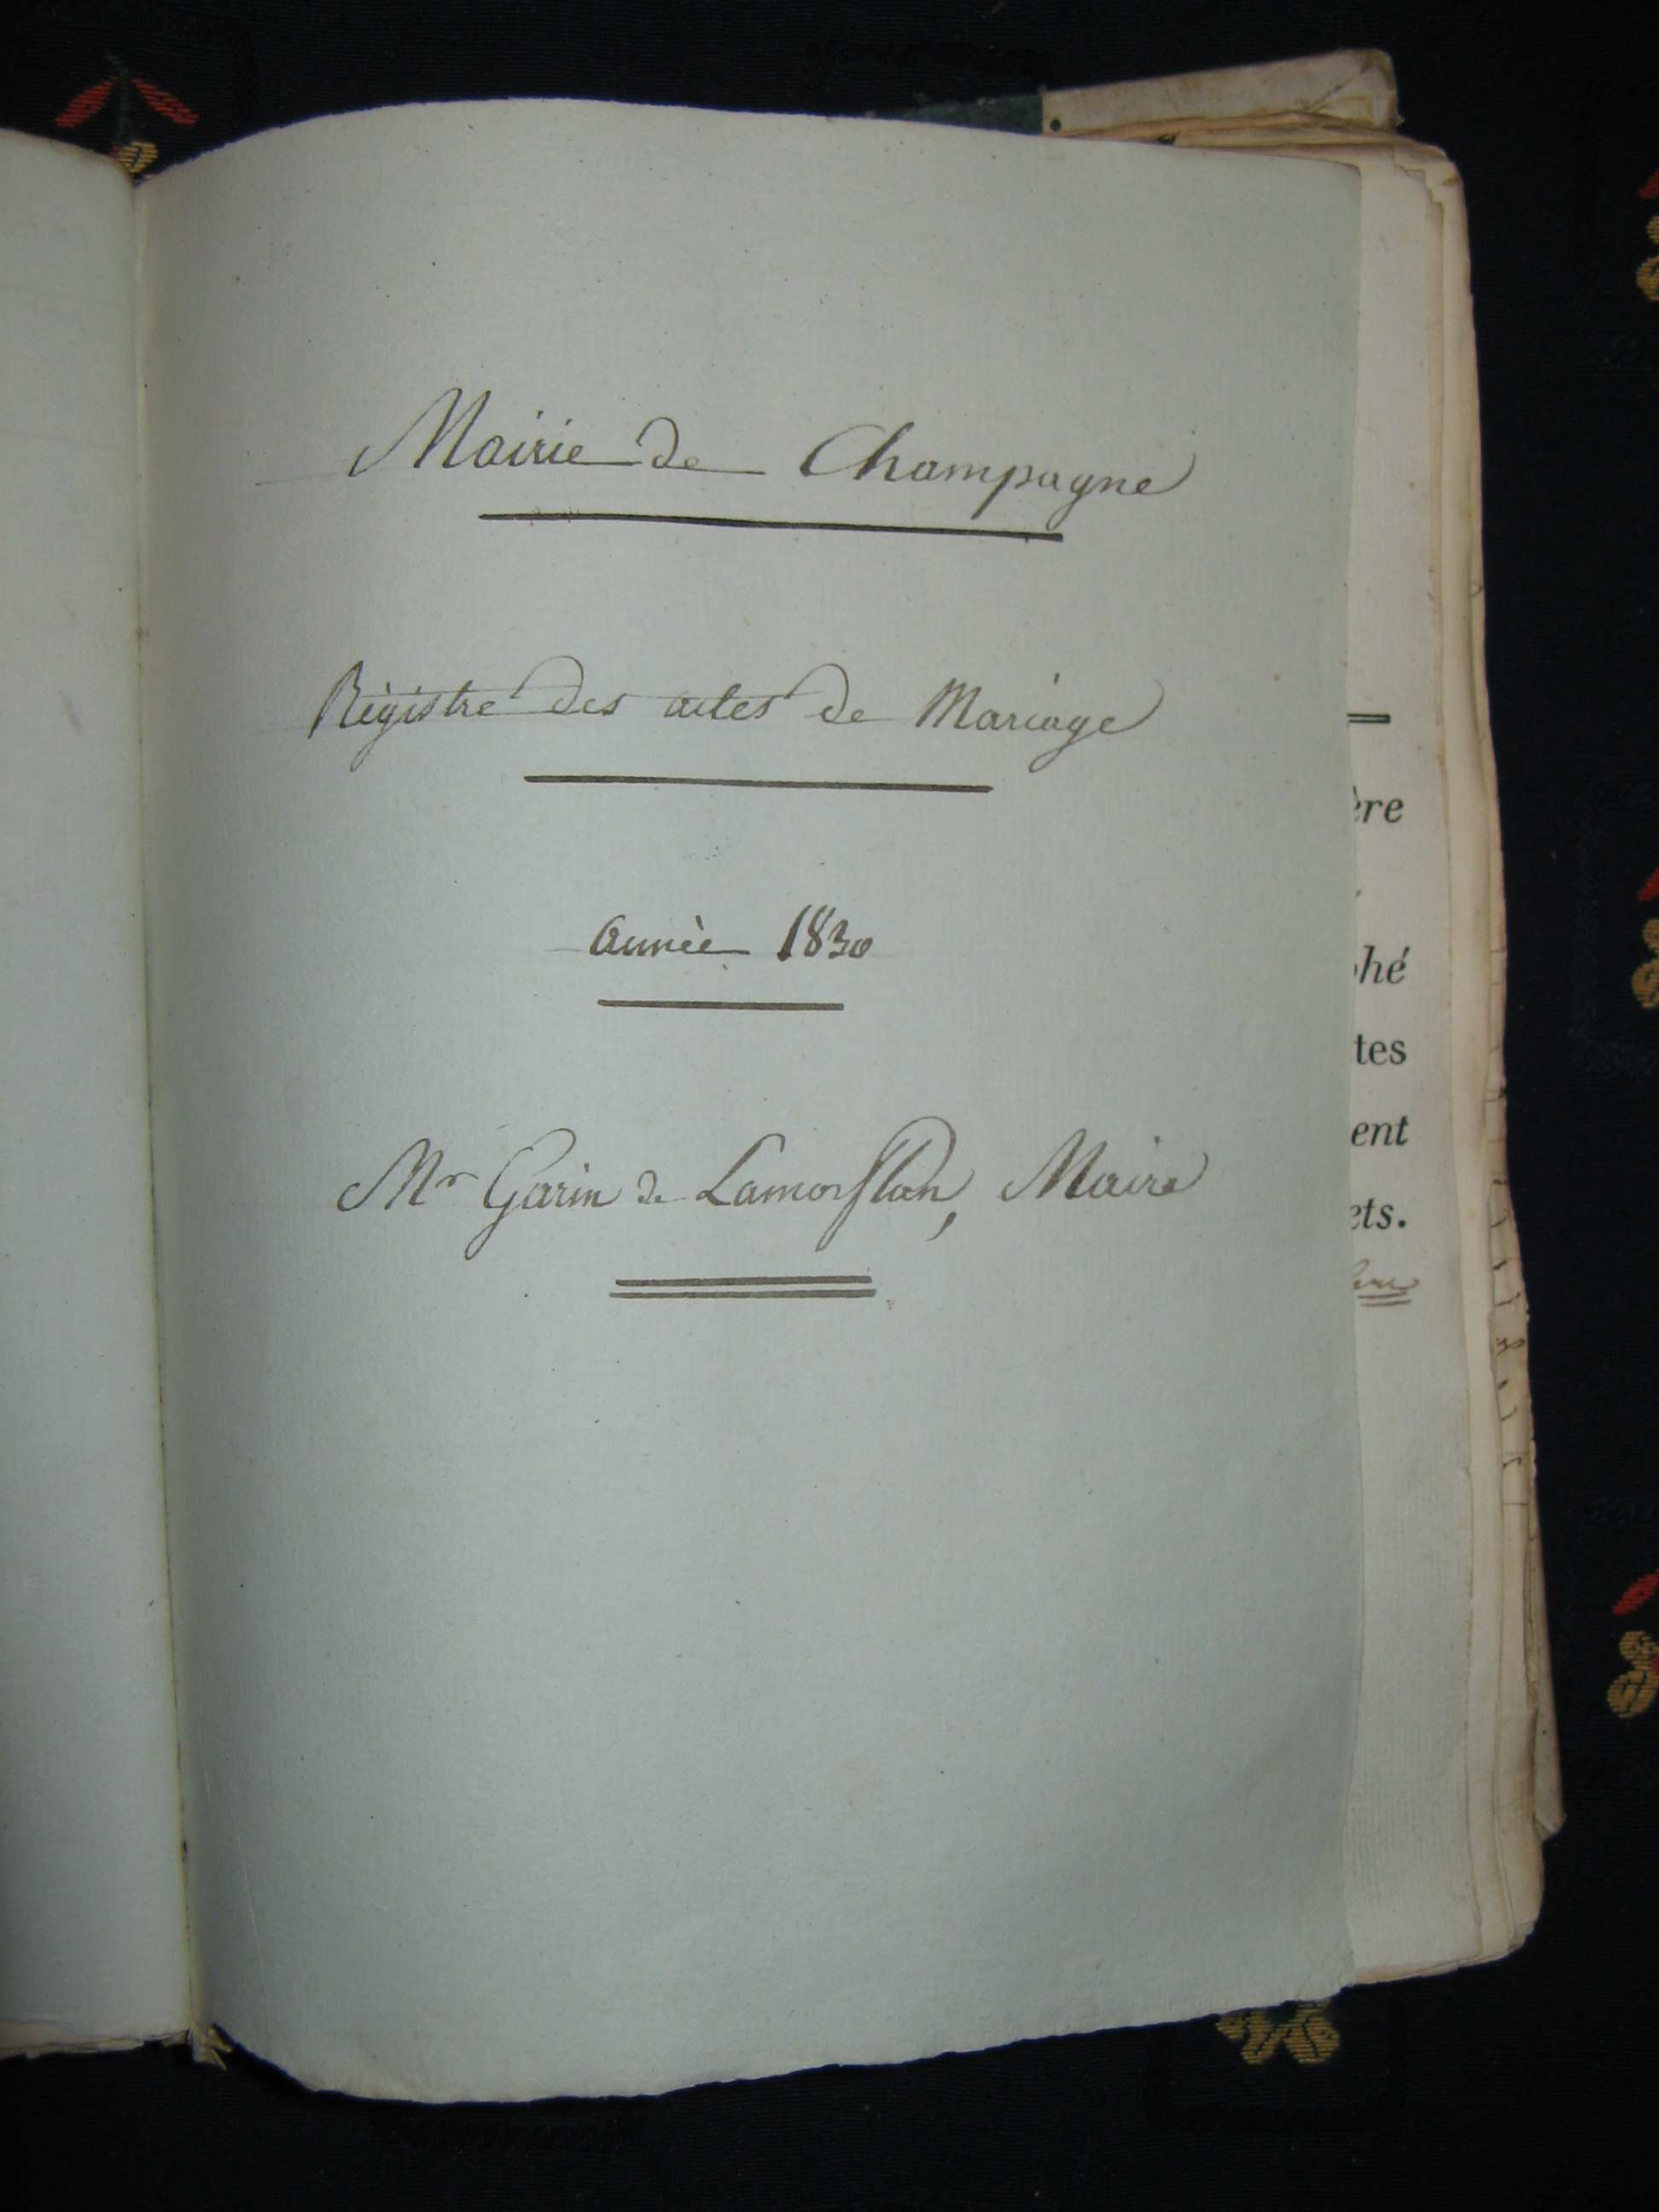 Mairie de Champagne
Règistre des actes de Mariage
année 1830
Mr Garin de Lamorflan, Maire
ère
hé
tes
ent
ets.